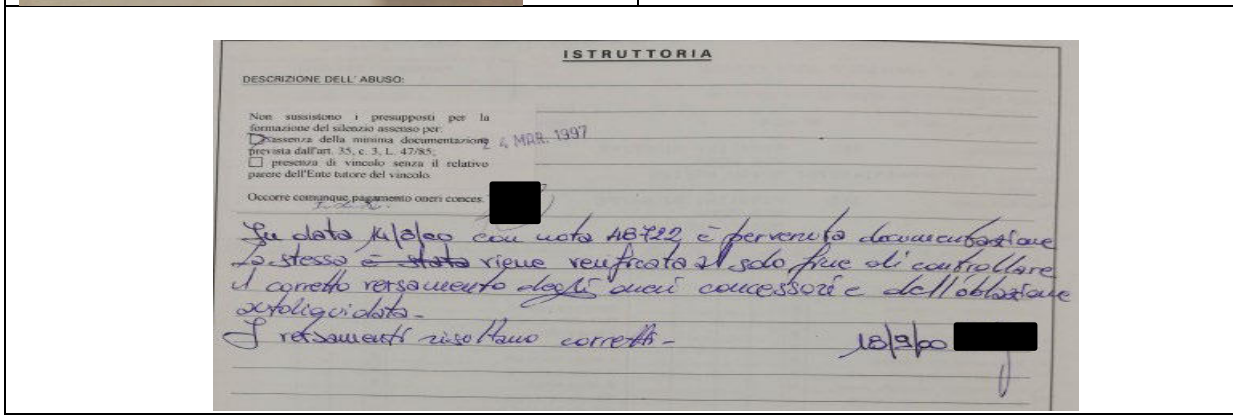 ISTRUTTORIA
DESCRIZIONE DELL' ABUSO:
Non sussistono i presupposti per la
formazione del silenzio assenso per:
assenza della minima documentazione
4 MAR. 1997
prevista dall'art. 35, c. 3, L. 47/85;
presenza di vincolo senza il relativo
parere dell'Ente tutore del vincolo.
Occorre comunque pagamento oneri conces.
In data 14/8/00 con nota 48722 è pervenuta documentazione
La stessa è stata viene verificata al solo fine di controllare
il corretto versamento degli oneri concessori e dell'oblazione
autoliquidata -
I versamenti risultano corretti -
18/9/00